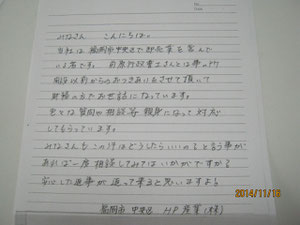 みなさん こんにちは。
当社は 福岡市中央区で 飲食業を営んで
いる者です。 前原行政書士さんとは
開設以前からのおつきあいをさせて頂いて
大変お世話になっています。
色々な質問や相談等 親身になって対応
してもらっています。
みなさんも この件はどうしたらいいの?と言う事が
あれば一度相談してみてはいかがですか?
安心した返事が 返って来ると思いますよ!
福岡市 中央区 HP産業(株)
2014/11/16